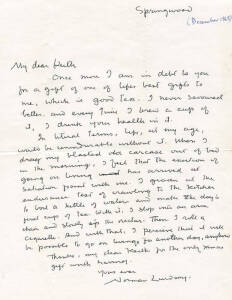 Springwood
(December 1968)
My dear Keith
Once more I am in debt to you
for a gift of one of life's best gifts to
me, which is good tea. I never savoured
better, and every time I brew a cup of
it, I drink your health in it.
In literal terms, life, at my age,
would be unendurable without it. When I
drag my blasted old carcase out of bed
in the morning, I feel that the exertion of
going on living has arrived at
saturation point with me. I groan at the
endurance test of crawling to the kitchen
to boil a kettle of water and make the day's
first cup of tea. With it, I slop into an arm
chair and slowly sip the nectar. Then I roll a
cigarette. And with that, I perceive that it will
be possible to go on living for another day, anyhow
Thanks, my dear Keith for the only
gift worth having.
Yours ever
Norman Lindsay.